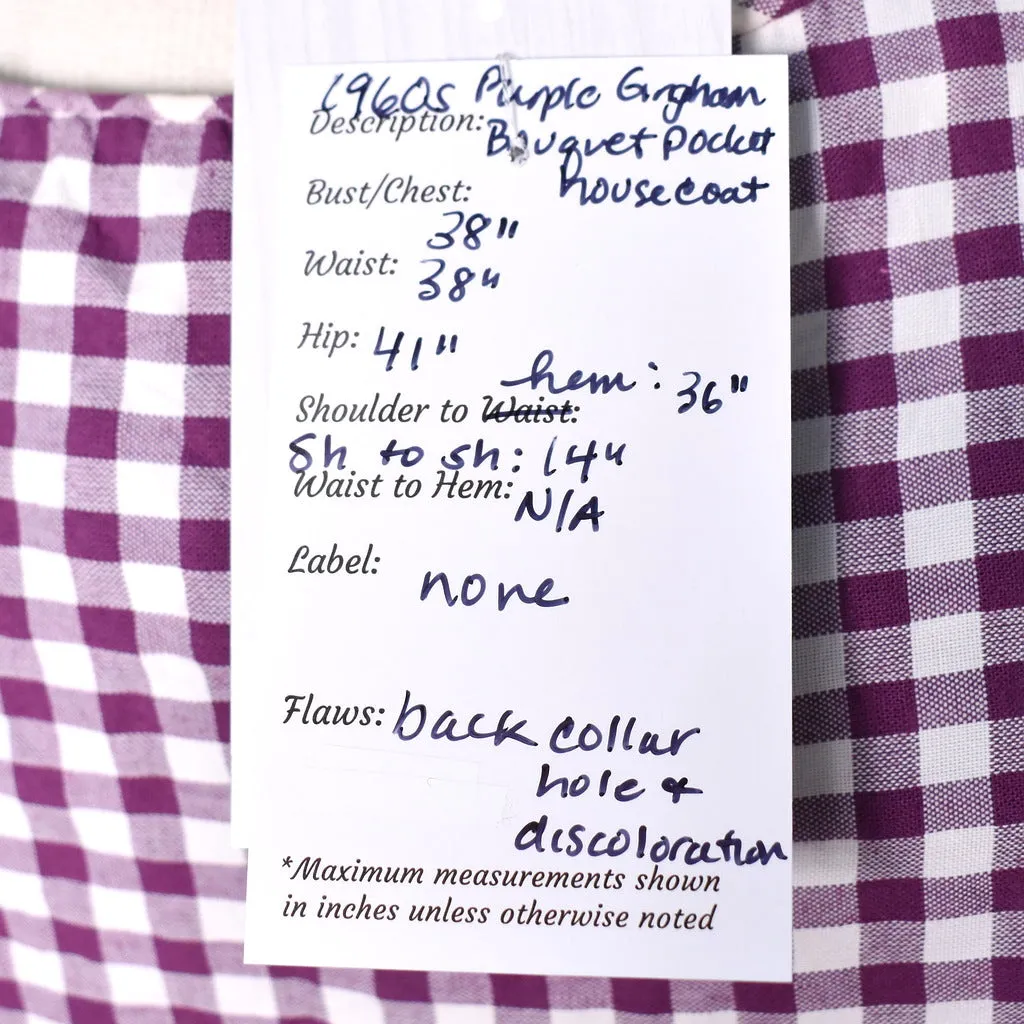 1960s Purple Gingham
Description: Bouquet Pocket
housecoat
Bust/Chest:
38"
Waist: 38"
Hip: 41"
hem: 36"
Shoulder to Waist:
Sh to sh: 14"
Waist to Hem:
N/A
Label:
none
Flaws: back collar
hole &
discoloration
*Maximum measurements shown
in inches unless otherwise noted